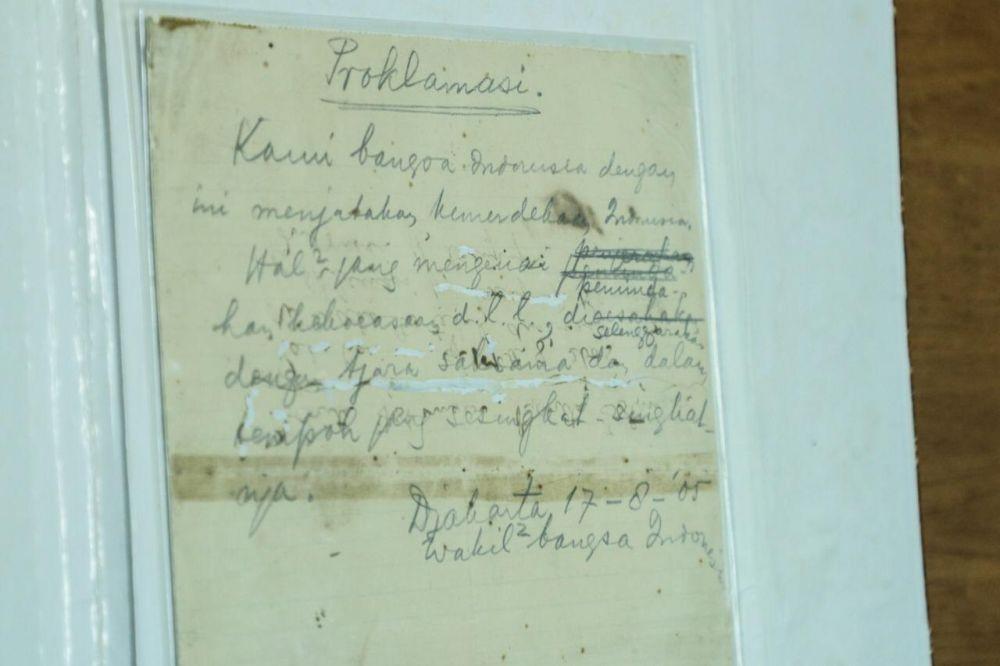 Proklamasi.
Kami bangsa Indonesia dengan
ini menjatakan kemerdekaan Indonesia.
Hal² jang mengenai penjerahan
pemindahan
peminda-
han kekoeasaan d.l.l. dioesahakan
selenggarakan
dengan tjara saksama dan dalam
tempoh jang sesingkat-singkat-
nja.
Djakarta, 17-8-'05
Wakil² bangsa Indonesia